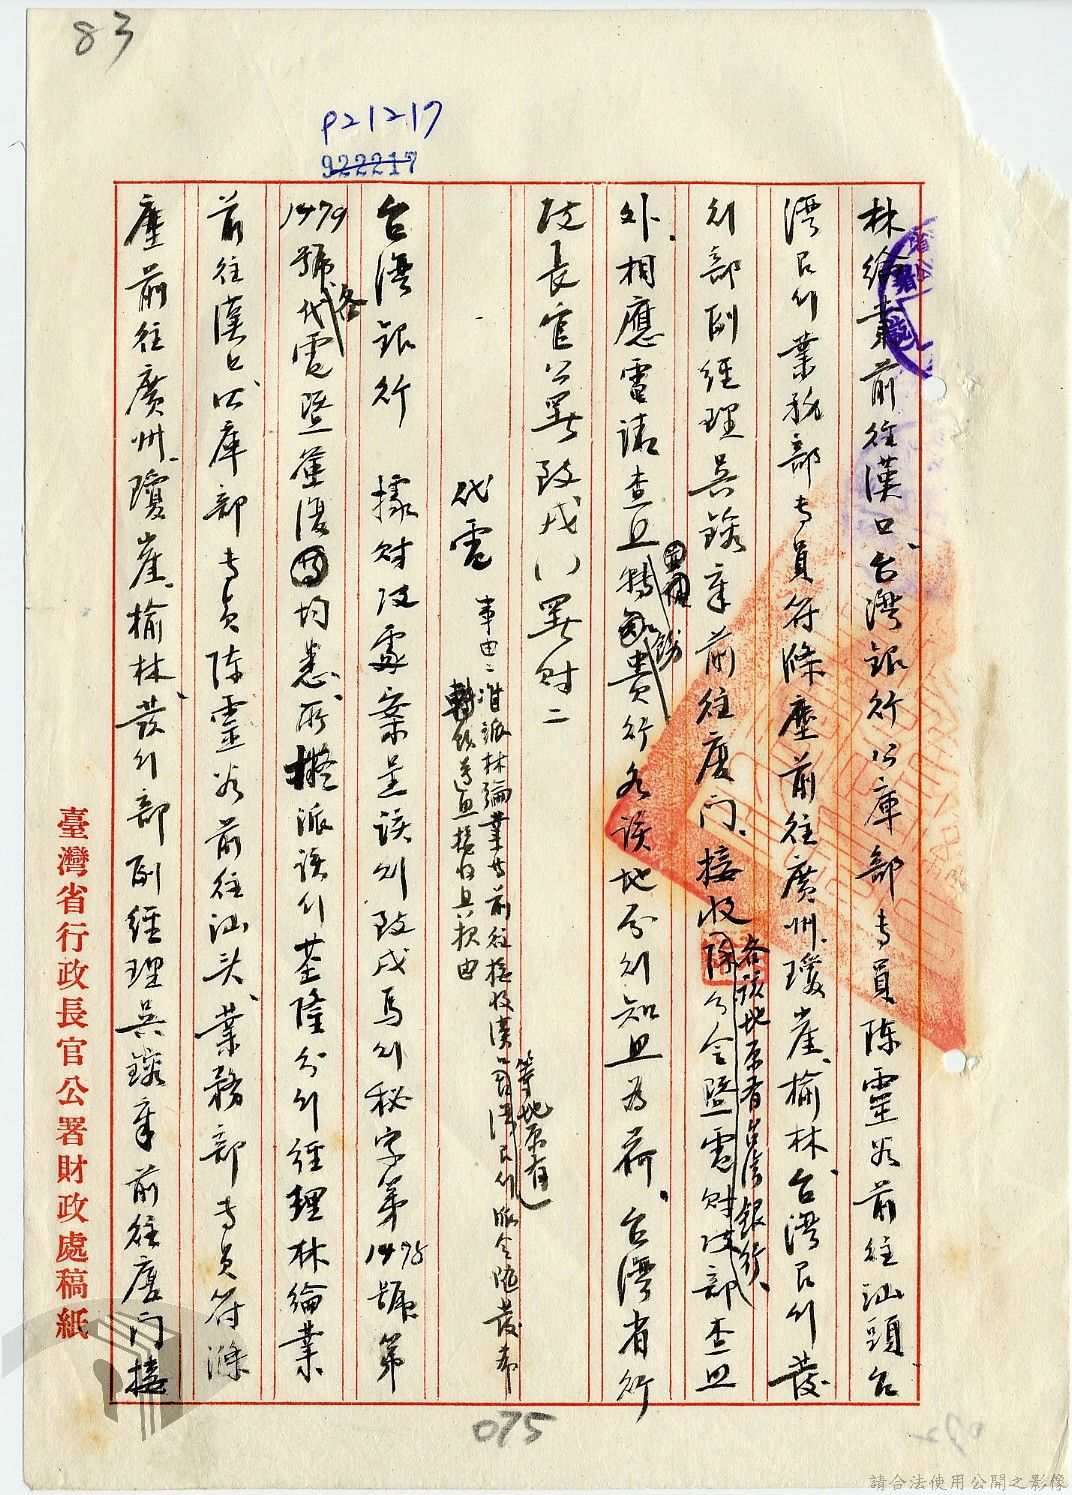 83
P21217
922217
林綸業前往漢口、台灣銀行公庫部專員陳靈谷前往汕頭、台
灣銀行業務部專員符滌塵前往廣州、瓊崖、榆林、台灣銀行發
行部副經理吳鏡庫前往廈門、接收各該地原有台灣銀行、除分令暨電財政部查照
外、相應電請查照轉飭貴行各該地分行知照為荷、台灣省行
政長官公署致戌(八)署財二
代電
事由：准派林綸業等前往接收漢口等地原有台灣銀行派令隨發希
轉飭遵照接收具報由
台灣銀行 據財政處案呈該行致戌馬行秘字第1478號第
1479號各代電暨簽復均悉、所擬派該行基隆分行經理林綸業
前往漢口、公庫部專員陳靈谷前往汕頭、業務部專員符滌
塵前往廣州、瓊崖、榆林、發行部副經理吳鏡庫前往廈門接
臺灣省行政長官公署財政處稿紙
075
請合法使用公開之影像